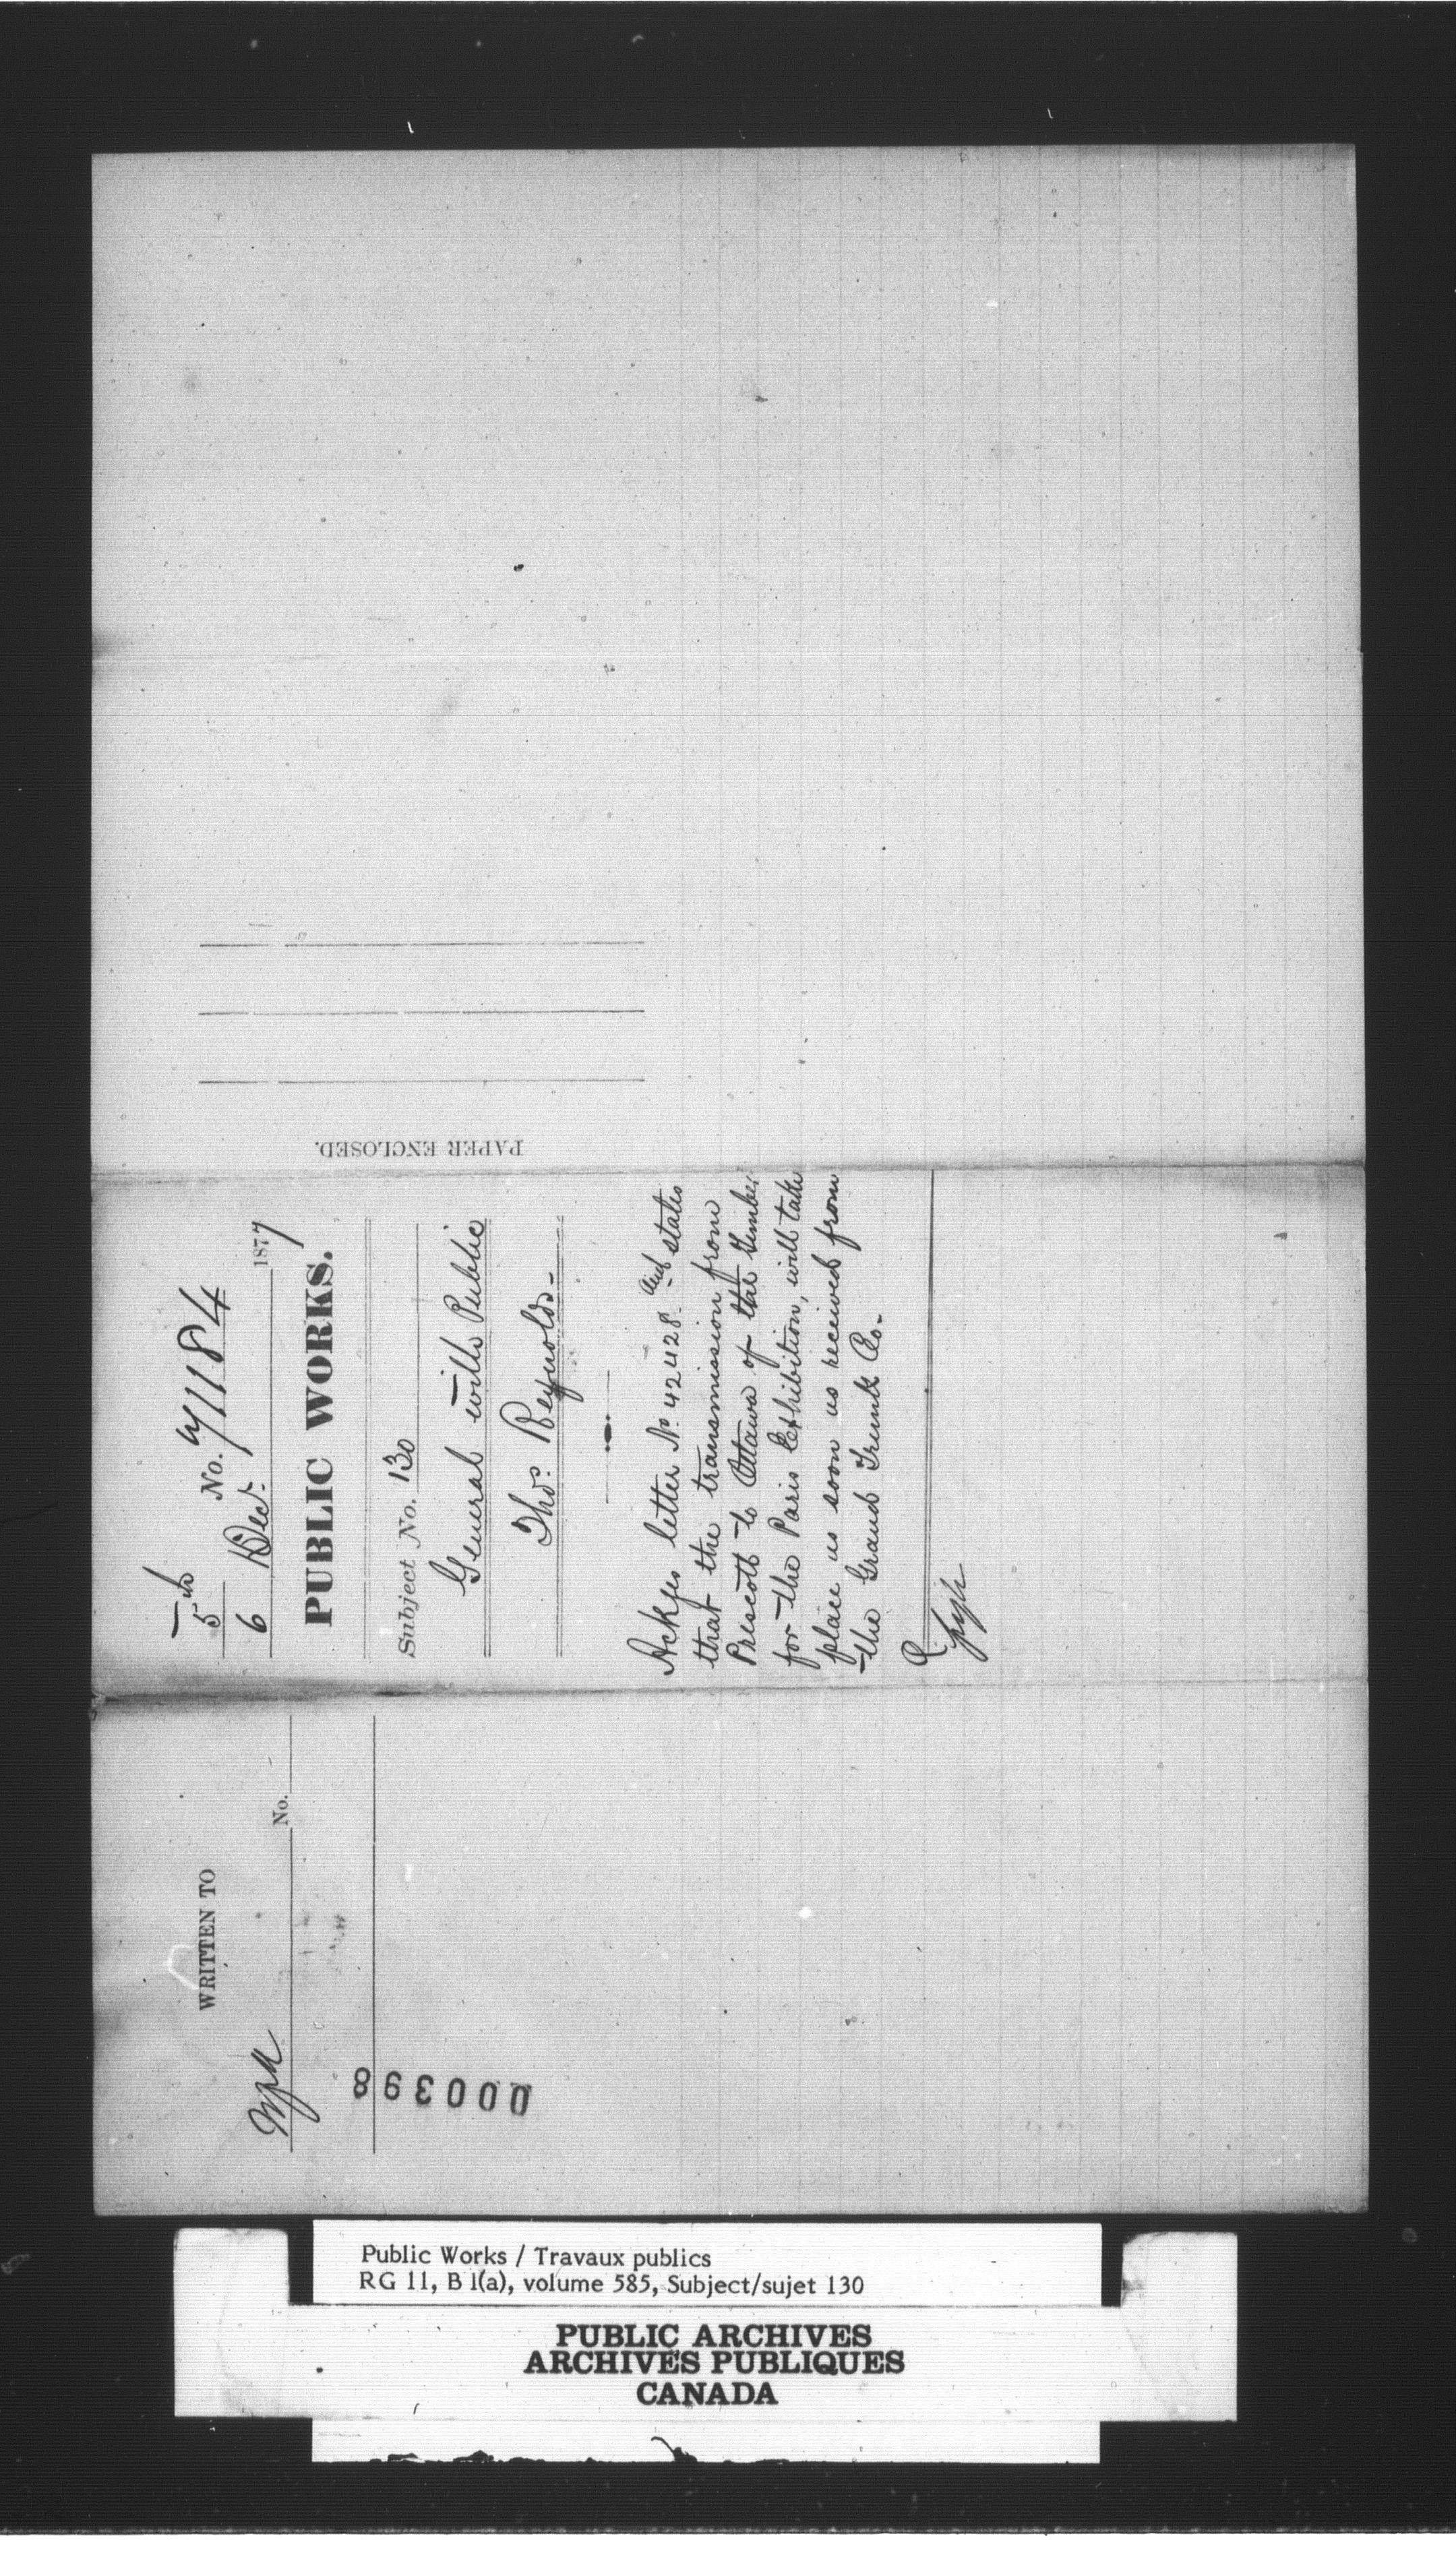 5th
No. 71184
6 Dec. 1877
PUBLIC WORKS.
Subject No. 130
General with Public
Thos. Reynolds-
Ackges letter No. 42428 and states
that the transmission from
Prescott to Ottawa of the Timber
for the Paris Exhibition, will take
place as soon as received from
the Grand Trunk Co-
PAPER ENCLOSED.
WRITTEN TO
No.
000398
Public Works / Travaux publics
RG 11, B 1(a), volume 585, Subject/sujet 130
PUBLIC ARCHIVES
ARCHIVES PUBLIQUES
CANADA